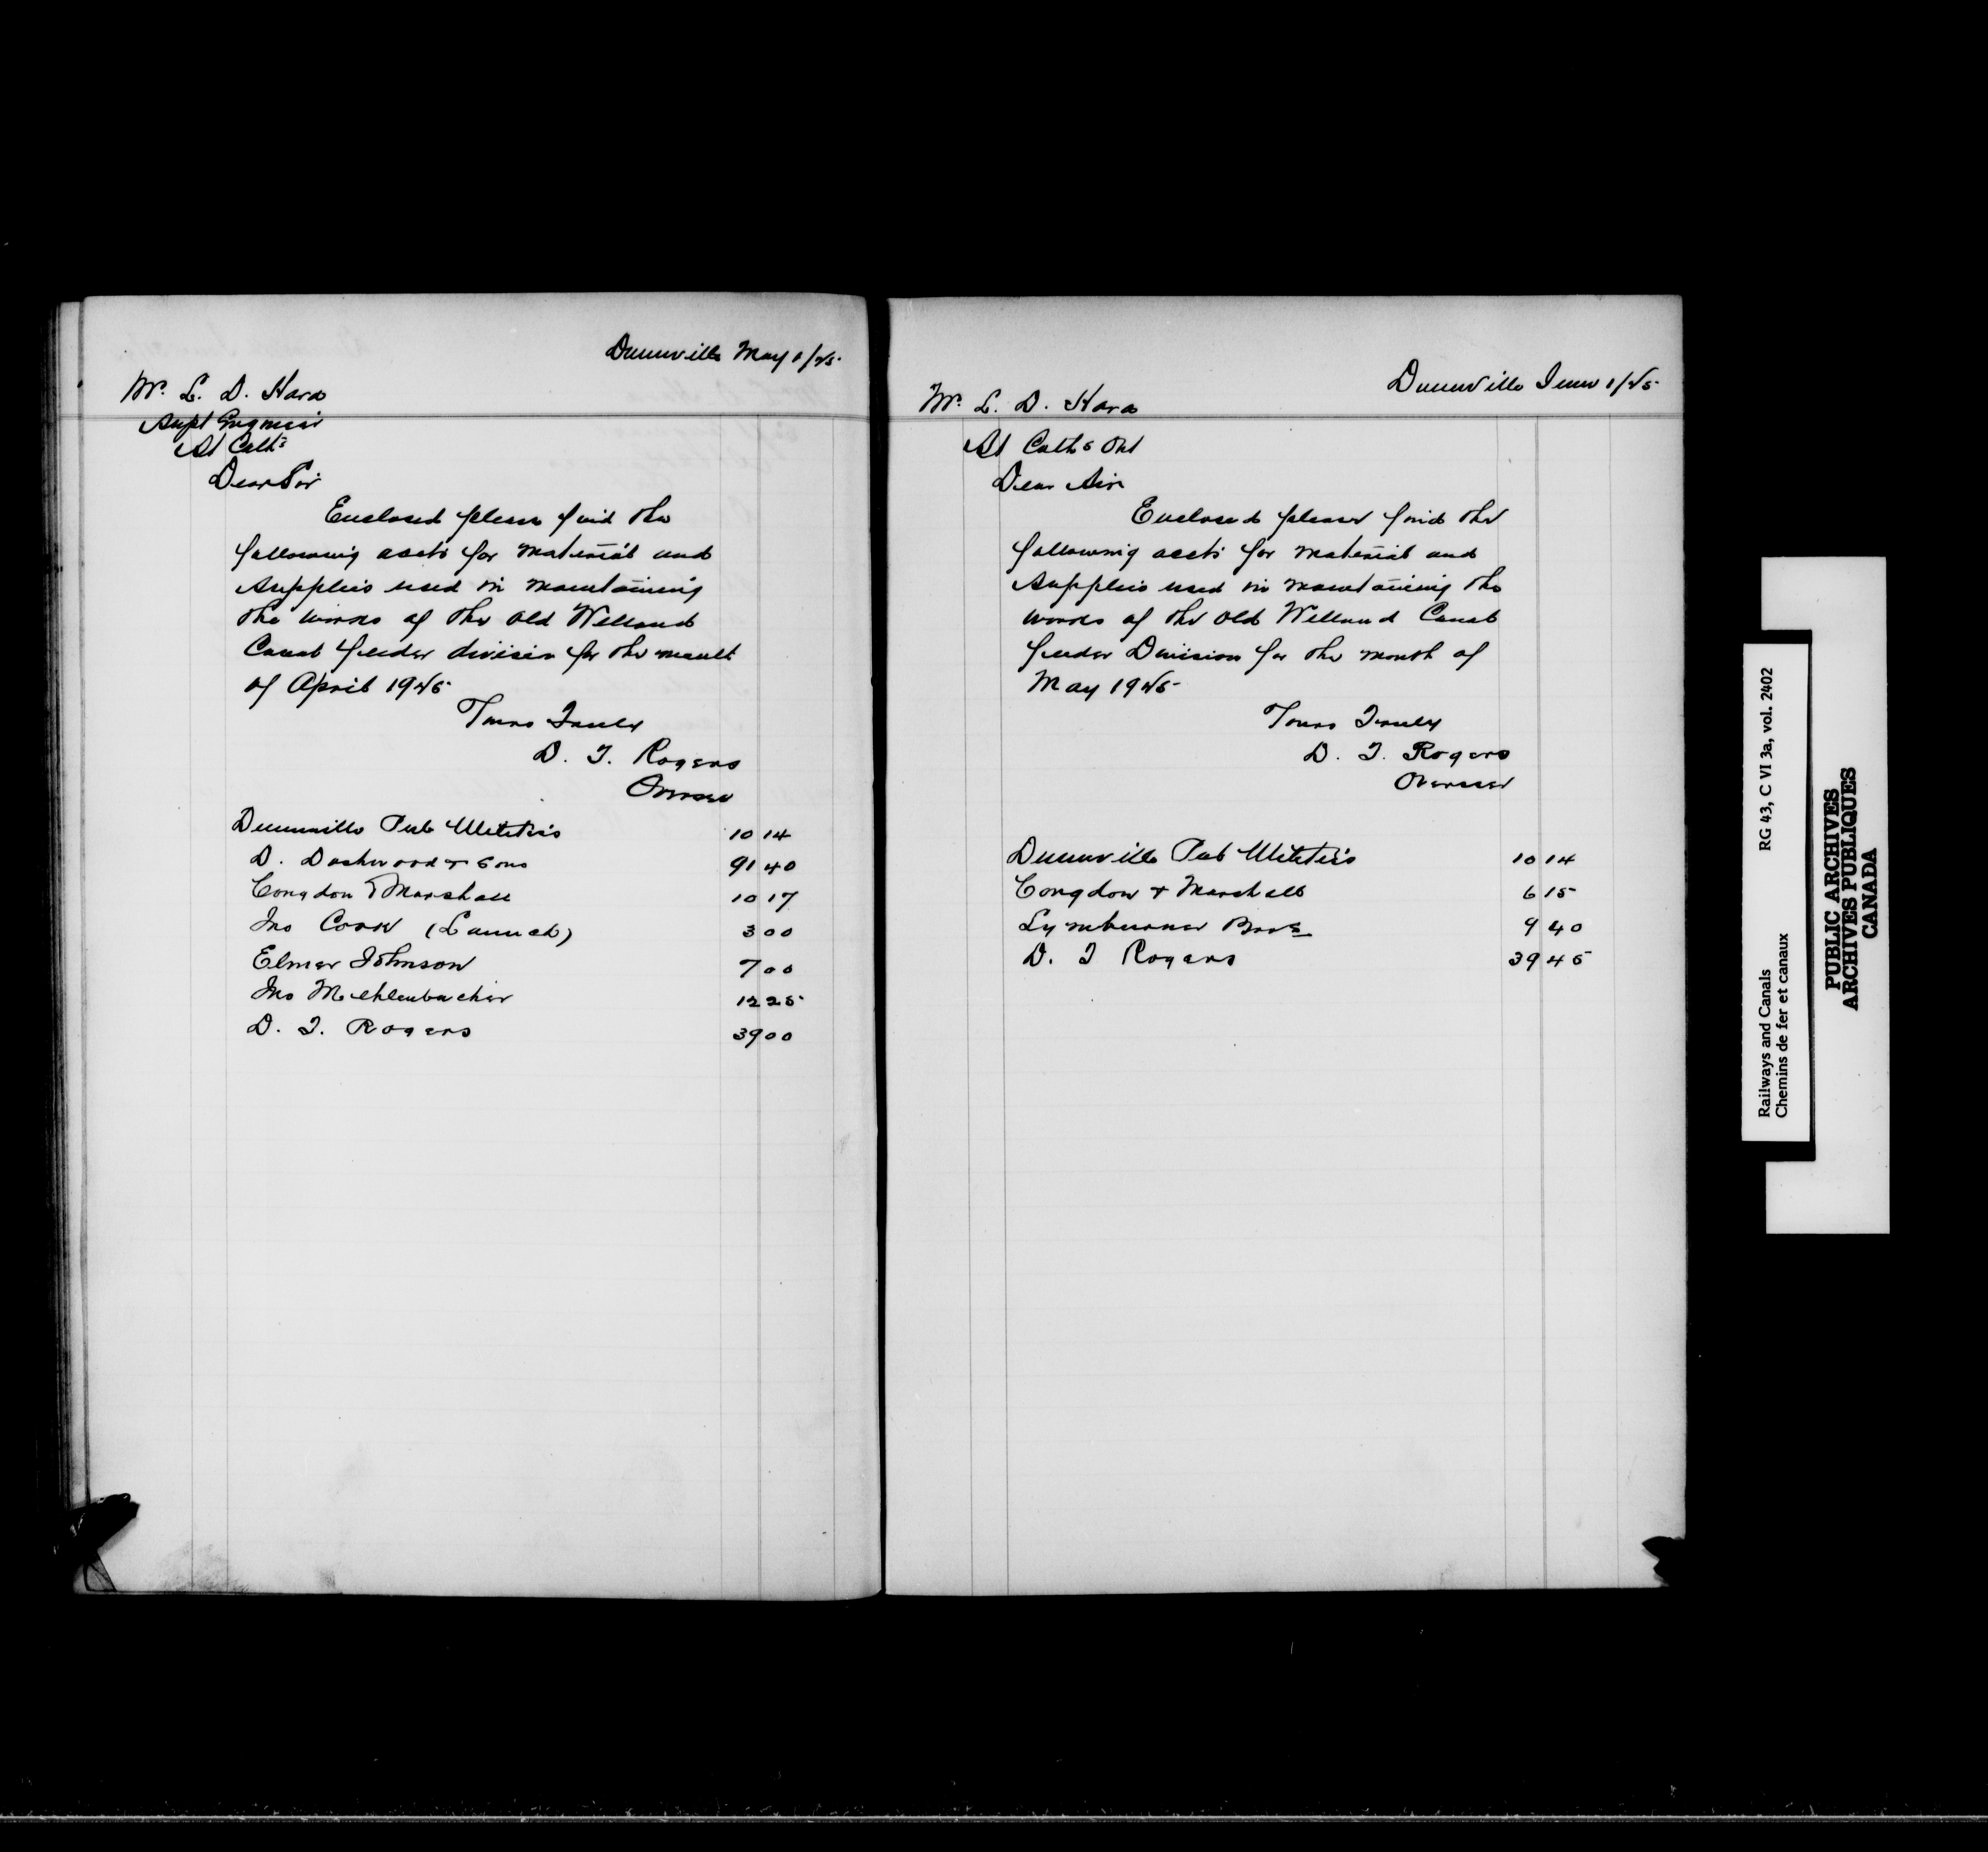 Dunnville May 1/25
Mr. L. D. Hara
Supt Engineer
St Caths
Dear Sir
Enclosed please find the
following accts for material and
Supplies used in maintaining
the works of the old Welland
Canal feeder division for the month
of April 1925
Yours Truly
D. T. Rogers
Overseer
Dunnville Pub Utilities 10 14
D. Dashwood & Sons 91 40
Congdon & Marshall 10 17
Jno Cook (Launch) 3 00
Elmer Johnson 7 00
Jno Mehlenbacher 12 25
D. T. Rogers 39 00
Dunnville June 1/25
Mr. L. D. Hara
St Caths Ont
Dear Sir
Enclosed please find the
following accts for material and
Supplies used in maintaining the
works of the old Welland Canal
feeder Division for the month of
May 1925
Yours Truly
D. T. Rogers
Overseer
Dunnville Pub Utilities 10 14
Congdon & Marshall 6 15
Lymburner Bros 9 40
D. T Rogers 39 45
Railways and Canals RG 43, C VI 3a, vol. 2402
Chemins de fer et canaux
PUBLIC ARCHIVES
ARCHIVES PUBLIQUES
CANADA